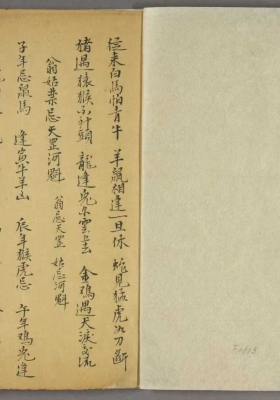 從来白馬怕青牛 羊鼠相逢一旦休 蛇見猛虎如刀断
猪遇猿猴不到頭 龍逢兎 雲去 金鶏遇犬淚交流
翁姑禁忌天罡河魁 翁忌天罡 姑忌河魁
子年忌鼠馬 逢寅牛羊山 辰年猴虎忌 午年鶏兎逢